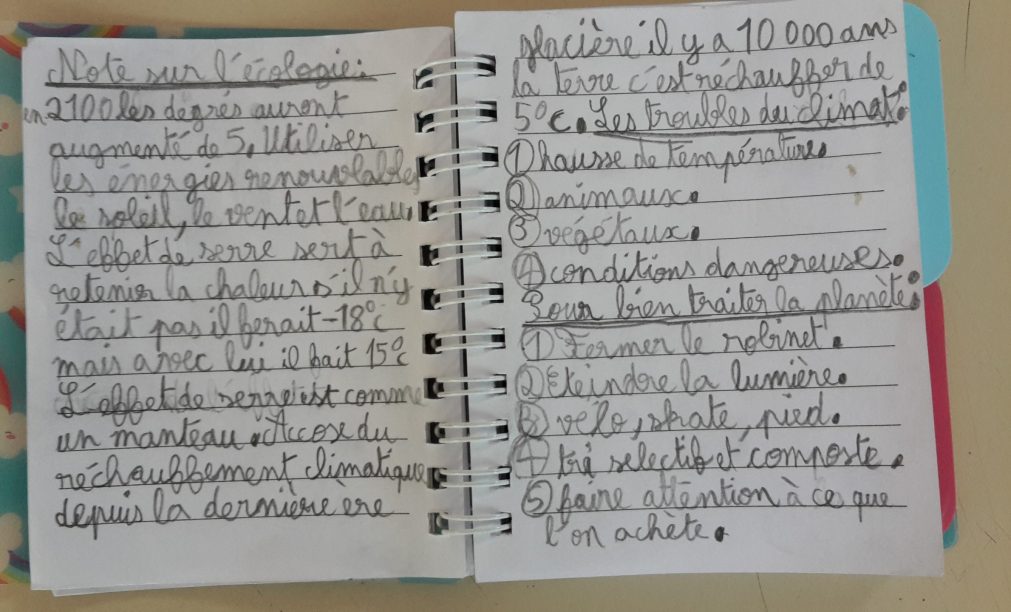 Note sur l'écologie:
en 2100 les degrés auront
augmenté de 5. Utiliser
les énergies renouvelables
le soleil, le vent et l'eau.
L'effet de serre sert à
retenir la chaleur s'il n'y
était pas il ferait -18°c
mais avec lui il fait 15°c
L'effet de serre est comme
un manteau. Accose du
réchauffement climatique
depuis la dernière ere
glacière il y a 10 000 ans
la terre c'est réchauffer de
5°c. Les troubles du climat.
① hausse de température.
② animaux.
③ végétaux.
④ conditions dangereuses.
Pour bien traiter la planète:
① Fermer le robinet.
② Eteindre la lumière.
③ vélo, skate, pied.
④ tri selectif et composte.
⑤ faire attention à ce que
l'on achète.